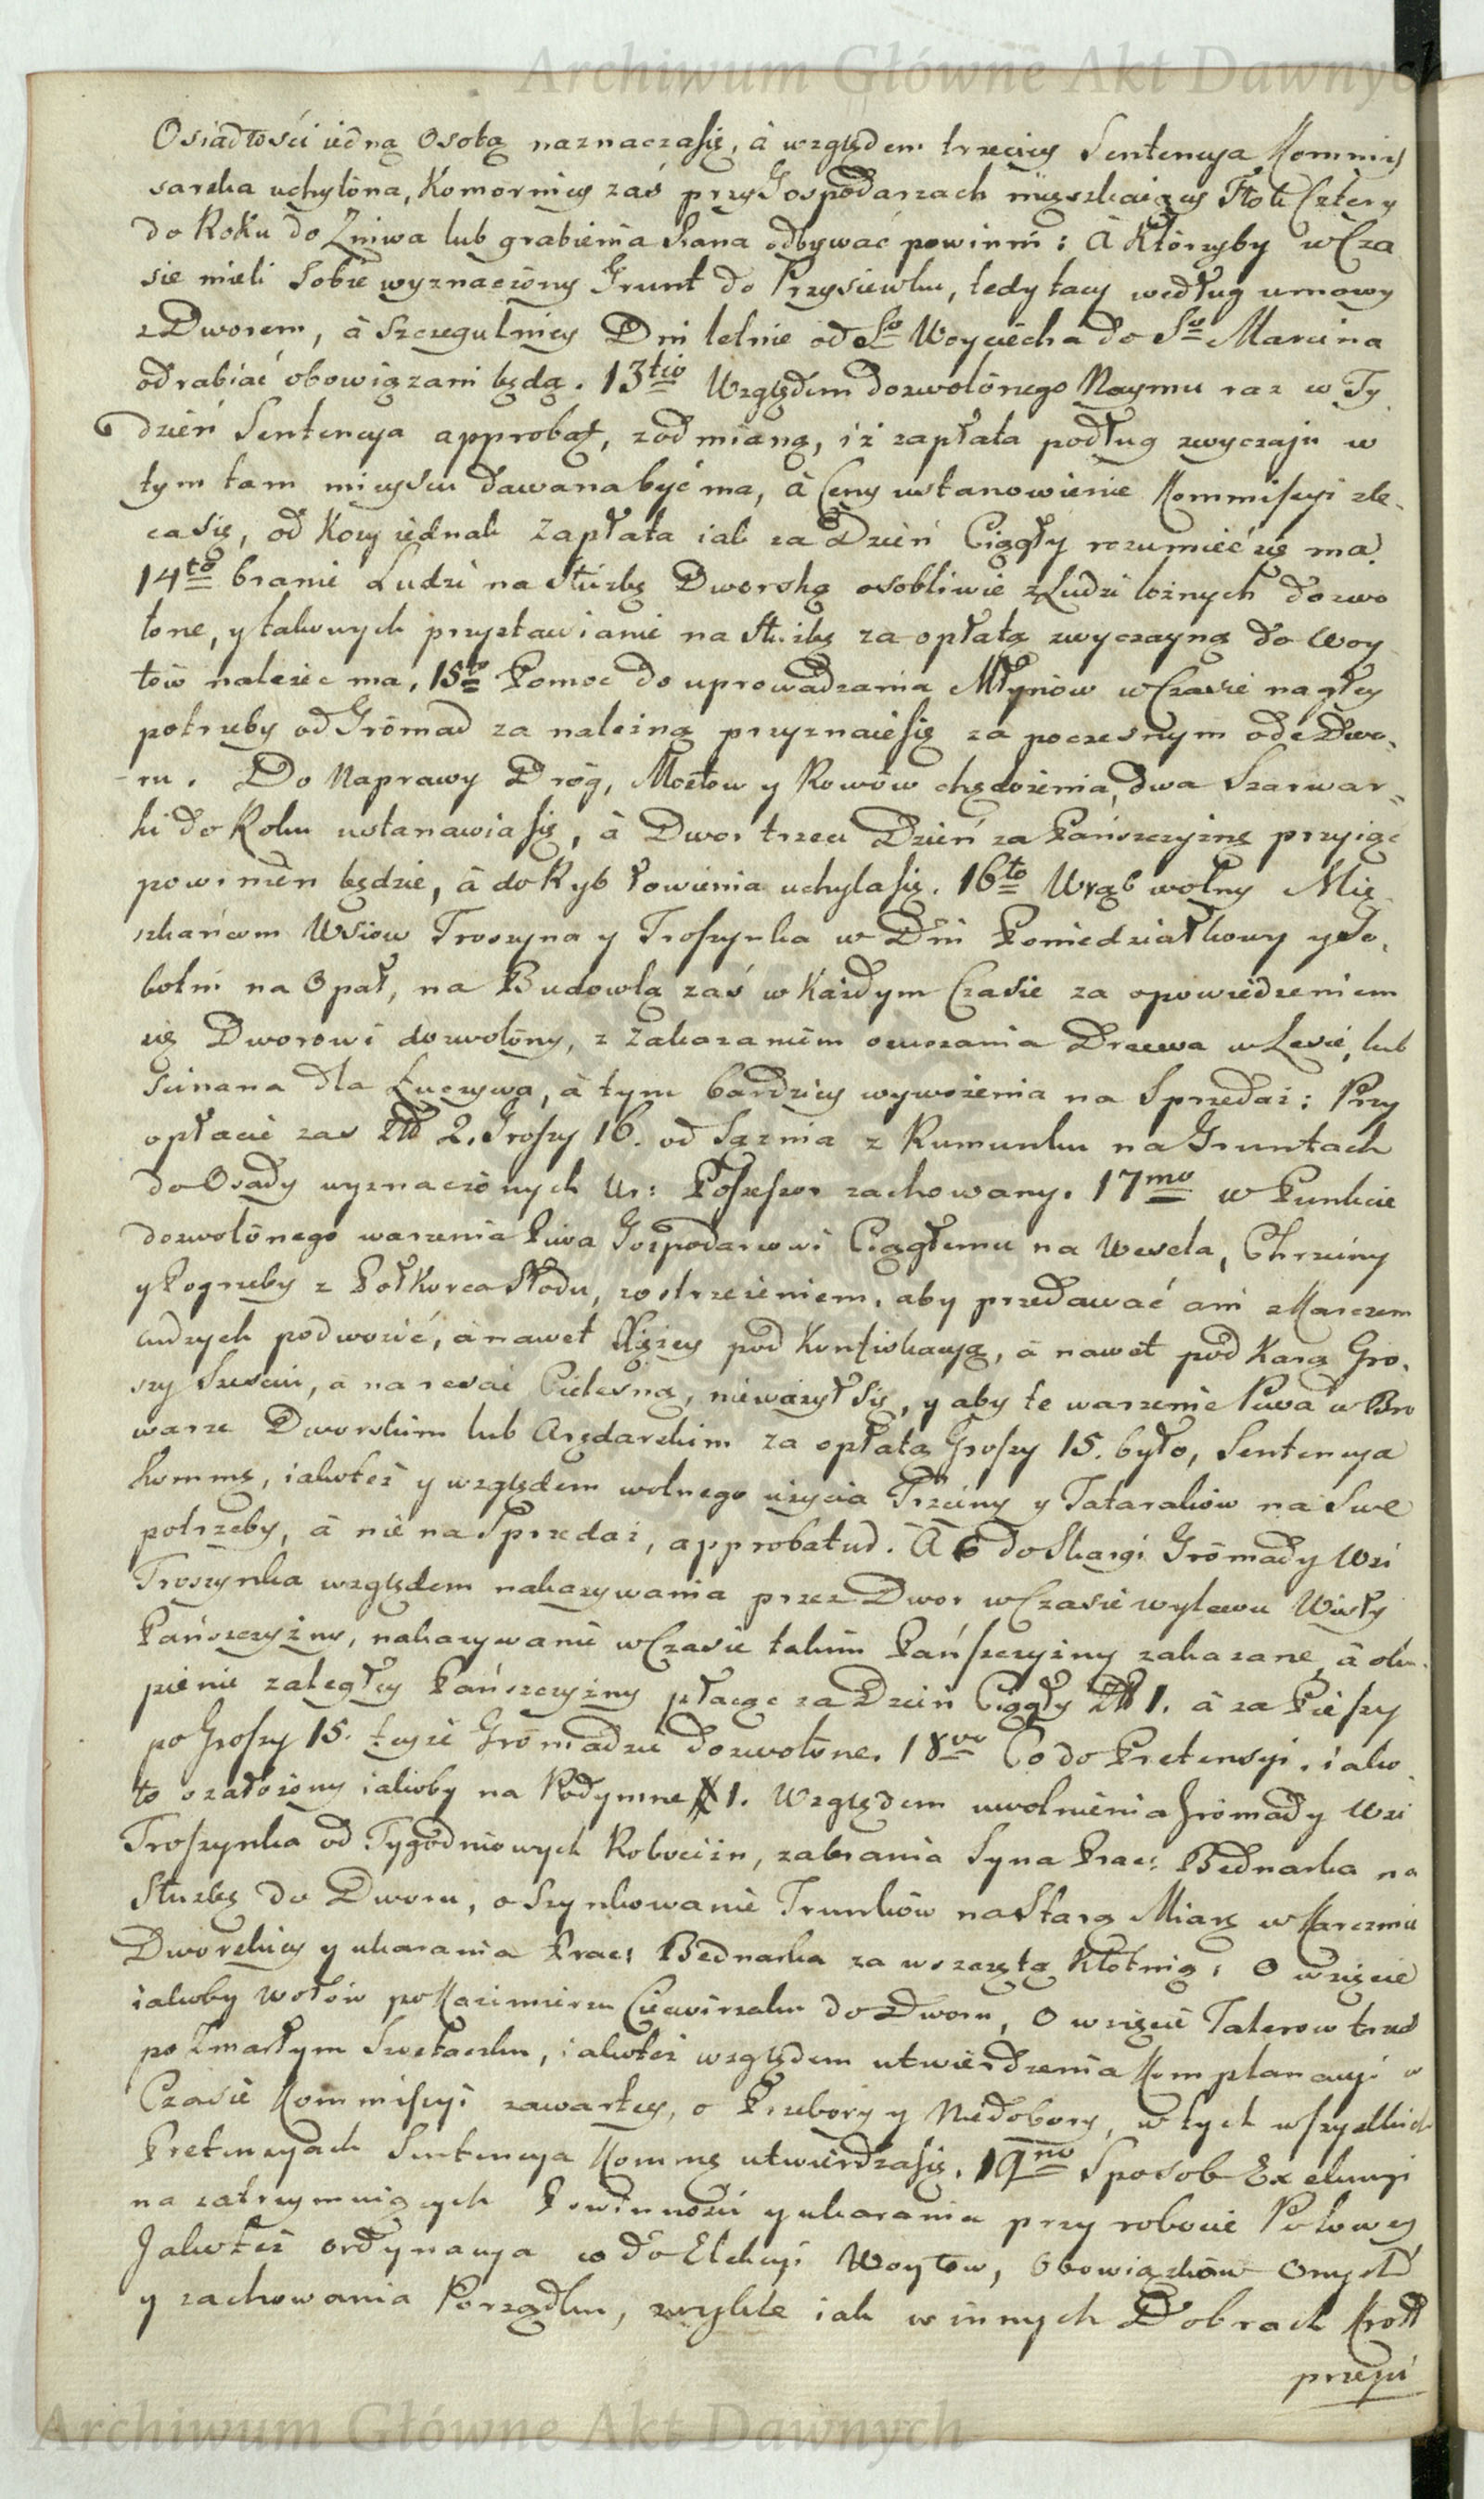 Archiwum Główne Akt Dawnych
Osiadłości iedną Osobą naznacza się, à względem trzeciey Sentencya Kommis
sarska uchylona, Komornicy zaś przy Gospodarzach mięszkaiący Tłoki Cztery
do Roku do Żniwa lub grabienia Siana odbywać powinni: à Którzyby w Cza
sie mieli Sobie wyznaczony Grunt do Przysiewku, tedy tacy według umowy
z Dworem, à Szczegulniey Dni letnie od So Woyciecha do So Marcina
odrabiać obowiązani będą. 13tio Względem dozwolonego Naymu raz w Ty
dzień Sentencya approbat, z odmianą, iż zapłata podług zwyczaju w
tym tam mieyscu dawana być ma, à Ceny ustanowienie Kommissyi zle-
ca się, od Kosy iednak Zapłata iak za Dzień Ciągły rozumieć się ma.
14to branie Ludzi na służbę Dworską osobliwie z Ludzi lożnych dozwo
lone, y takowych przystawianie na służbę za opłatą zwyczayną do Woy
tow należeć ma, 15to Pomoc do uprowadzania Młynów w Czasie nagłey
potrzeby od Gromad za należną przyznaie się za poczesnym ode Dwo-
ru. Do Naprawy Dróg, Mostow y Rowów chędożenia, dwa Szarwar-
ki do Roku ustanawia się, à Dwor trzeci Dzień za Pańszczyznę przyiąć
powinien będzie, à do Ryb łowienia uchyla się. 16to Wrąb wolny Mię
szkańcom Wsiow Troszyna y Troszynka w Dni Poniedziałkowy y So-
botni na Opał, na Budowlą zaś w Każdym Czasie za opowiedzeniem
się Dworowi dozwolony, z Zakazaniem Drzewa w Lesie, lub
scinana dla Łuczywa, à tym bardziey wywożenia na Sprzedaż: Przy
opłacie zas Zł 2. Groszy 16. od Sążnia z Rumunku na Gruntach
do Osady wyznaczonych Ur: Possessor zachowany. 17mo w Punkcie
dozwolonego warzenia Piwa Gospodarzowi Ciągłemu na Wesela, Chrzciny
y Pogrzeby z Połkorca Słodu, zostrzeżeniem, aby przedawać ani z Karczem
cudzych podwozić, à nawet pod Konfiskacyą, à nawet pod Karą Gro-
szy Szesciu, à na resztę Cielesną, nieważył się, y aby te warzenie Piwa w Bro
warze Dworskim lub Arędarskim za opłatą Groszy 15. było, Sentencya
Kommę, iakoteż y względem wolnego użycia Trzciny y Tatarakow na Swe
potrzeby, à nie na Sprzedaż, approbatur. À Co do Skargi Gromady Wsi
Troszynka względem nakazywania przez Dwor w Czasie wylewu Wisły
Pańszczyzny, nakazywanie w Czasie takim Pańszczyzny zakazane, à oku-
pienie zaległey Pańszczyzny płacąc za Dzień Ciągły Zł 1. à za Pieszy
po Groszy 15. teyże Gromadzie dozwolone. 18vo Co do Pretensyi, iako
to założony iakoby na Kodymne 1. Względem uwolnienia Gromady Wsi
Troszynka od Tygodniowych Robocizn, zabrania Syna Prac: Bednarka na
Służbę do Dworu, o Szynkowanie Trunków na Starą Miarę w Karczmie
Dworskiey y ukarania Prac: Bednarka za wszczętą Kłotnią, O wzięcie
iakoby Wołów po Kazimierzu do Dworu, O wzięcie Talerow trzech
po Zmarłym, iakoteż względem utwierdzenia Komplanacyi w
Czasie Kommissyi zawartey, o Przebory y Niedobory, w tych wszystkich
Pretensyach Sentencya Kommę utwierdza się. 19no Sposob Exekucyi
na zatrzymuiących Powinności y ukarania przy robocie Polowey
Jakoteż ordynacya co do Elekcyi Woytow, Obowiązków Onych
y zachowania Porządku, zwykle iak w innych Dobrach Kroll
przepi
Archiwum Główne Akt Dawnych